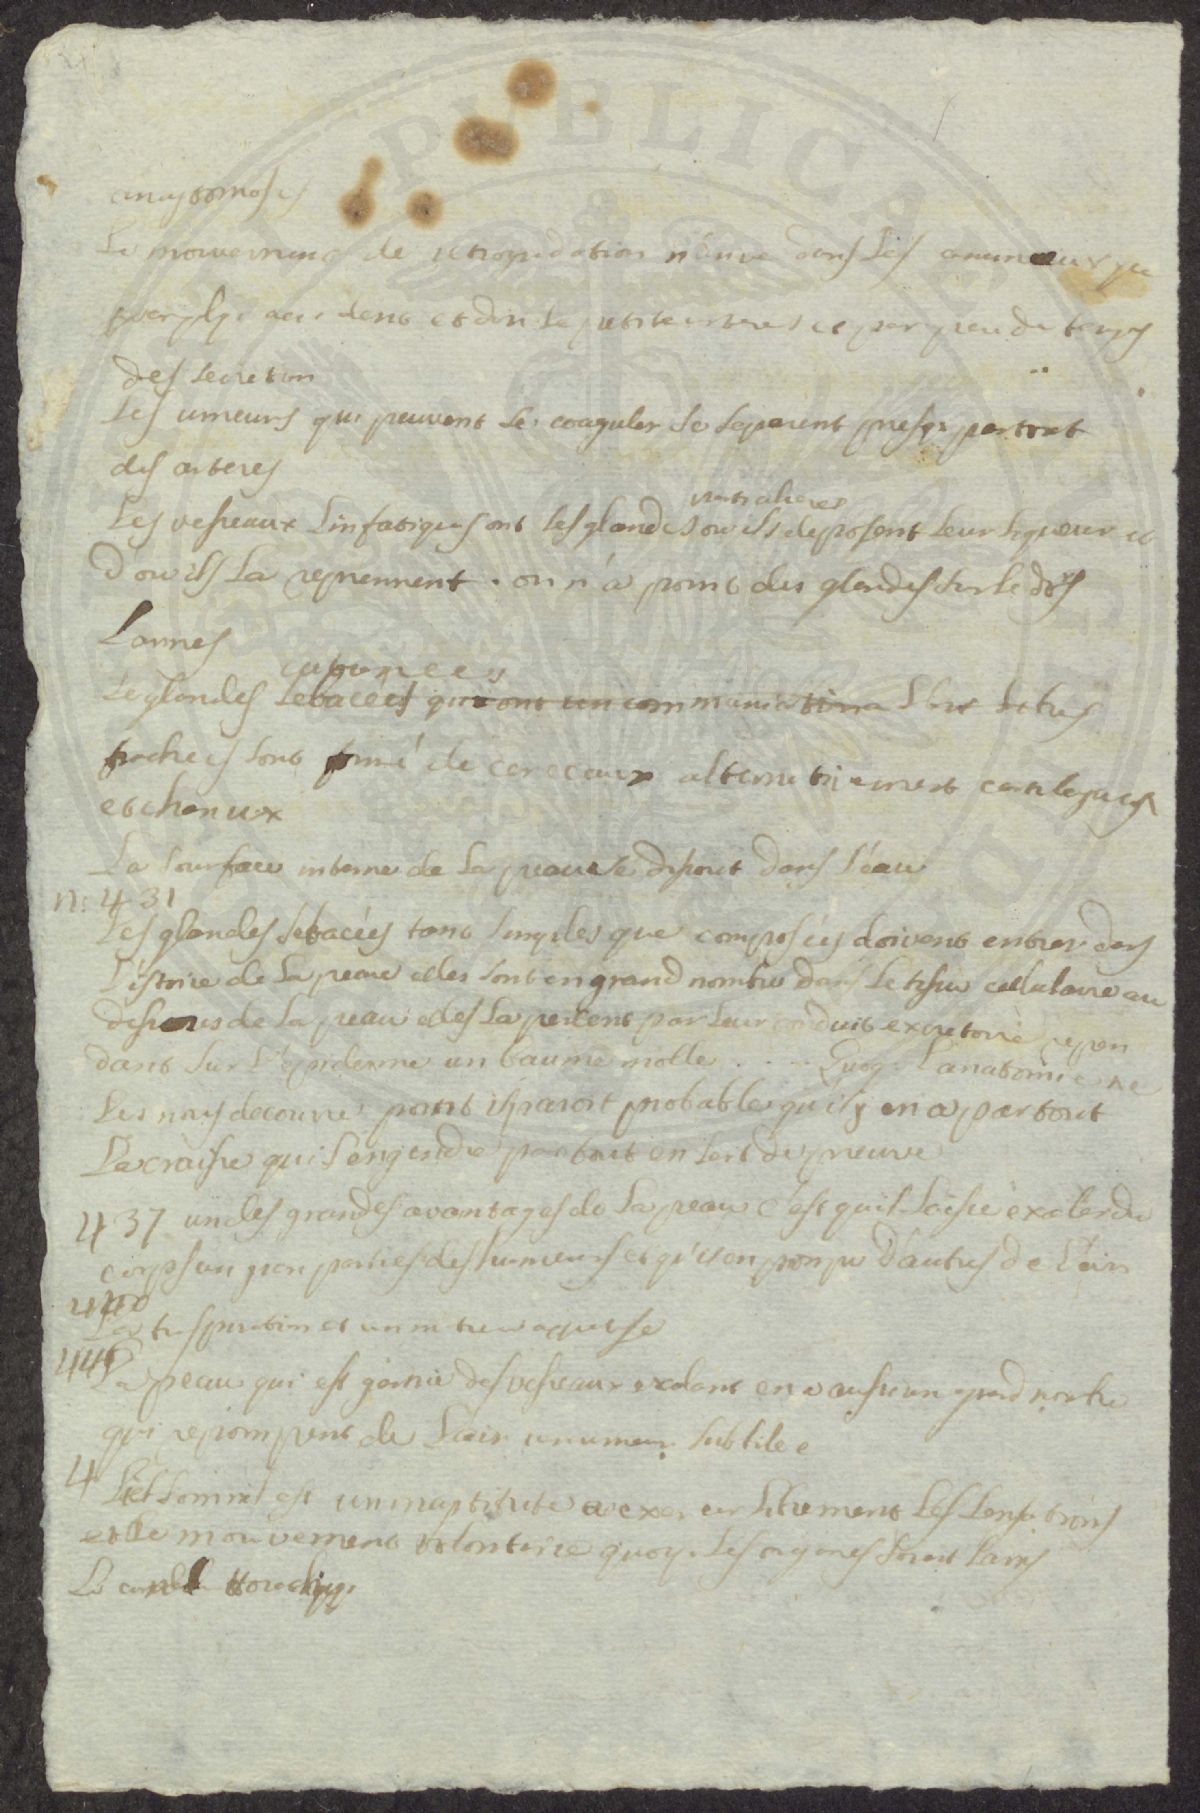 anastomoses
Le mouvement de retrogradation n'arive dans les animaux que
par plqe accident et dan le petite arteres et par peu du temps
des secretion
Les umeurs qui peuvent se coaguler se separent presqe partout
des arteres
Les vesseaux Linfatiques ont les glandes ou ils deposent leur liqueur et
D'ou ils la reprennent. on n'a point des glandes sur le dos
Larmes
Le glandes sebacées qui ont un communication
tracheés sont formé de cerceaux alternativement
et charnux
La sourface interne de la peau se disout dans l'eau
n: 431
Les glandes sebacées tant simples que composées doivent entrer dans
L'istoire de la peau elles sont en grand nombre dans le tissu cellulaire au
dessous de la peau elles la percent par leur conduit excretoire repen
dant sur l'epiderme un baume molle .... Quoyqe l'anatomie ne
Les nous decouvre point il paroit probable qu'il y en a partout
La crasse qui s'engendre partout en sert de preuve
437 un des grandes avantages de la peau c'est qu'il laisse exaler du
corps un gran parties des humeurs et qu'il en pompe d'autres de l'air
440
La traspiration et un matiere aqueuse
441
La peau qui est garnie des vesseaux exalant en a aussi un grand nombre
qui repompent de l'air un umeur subtile
4
Le sommeil est un inaptitude a exercer librement les sensations
et le mouvement volontaire quoyqe les organes soient sains
Le